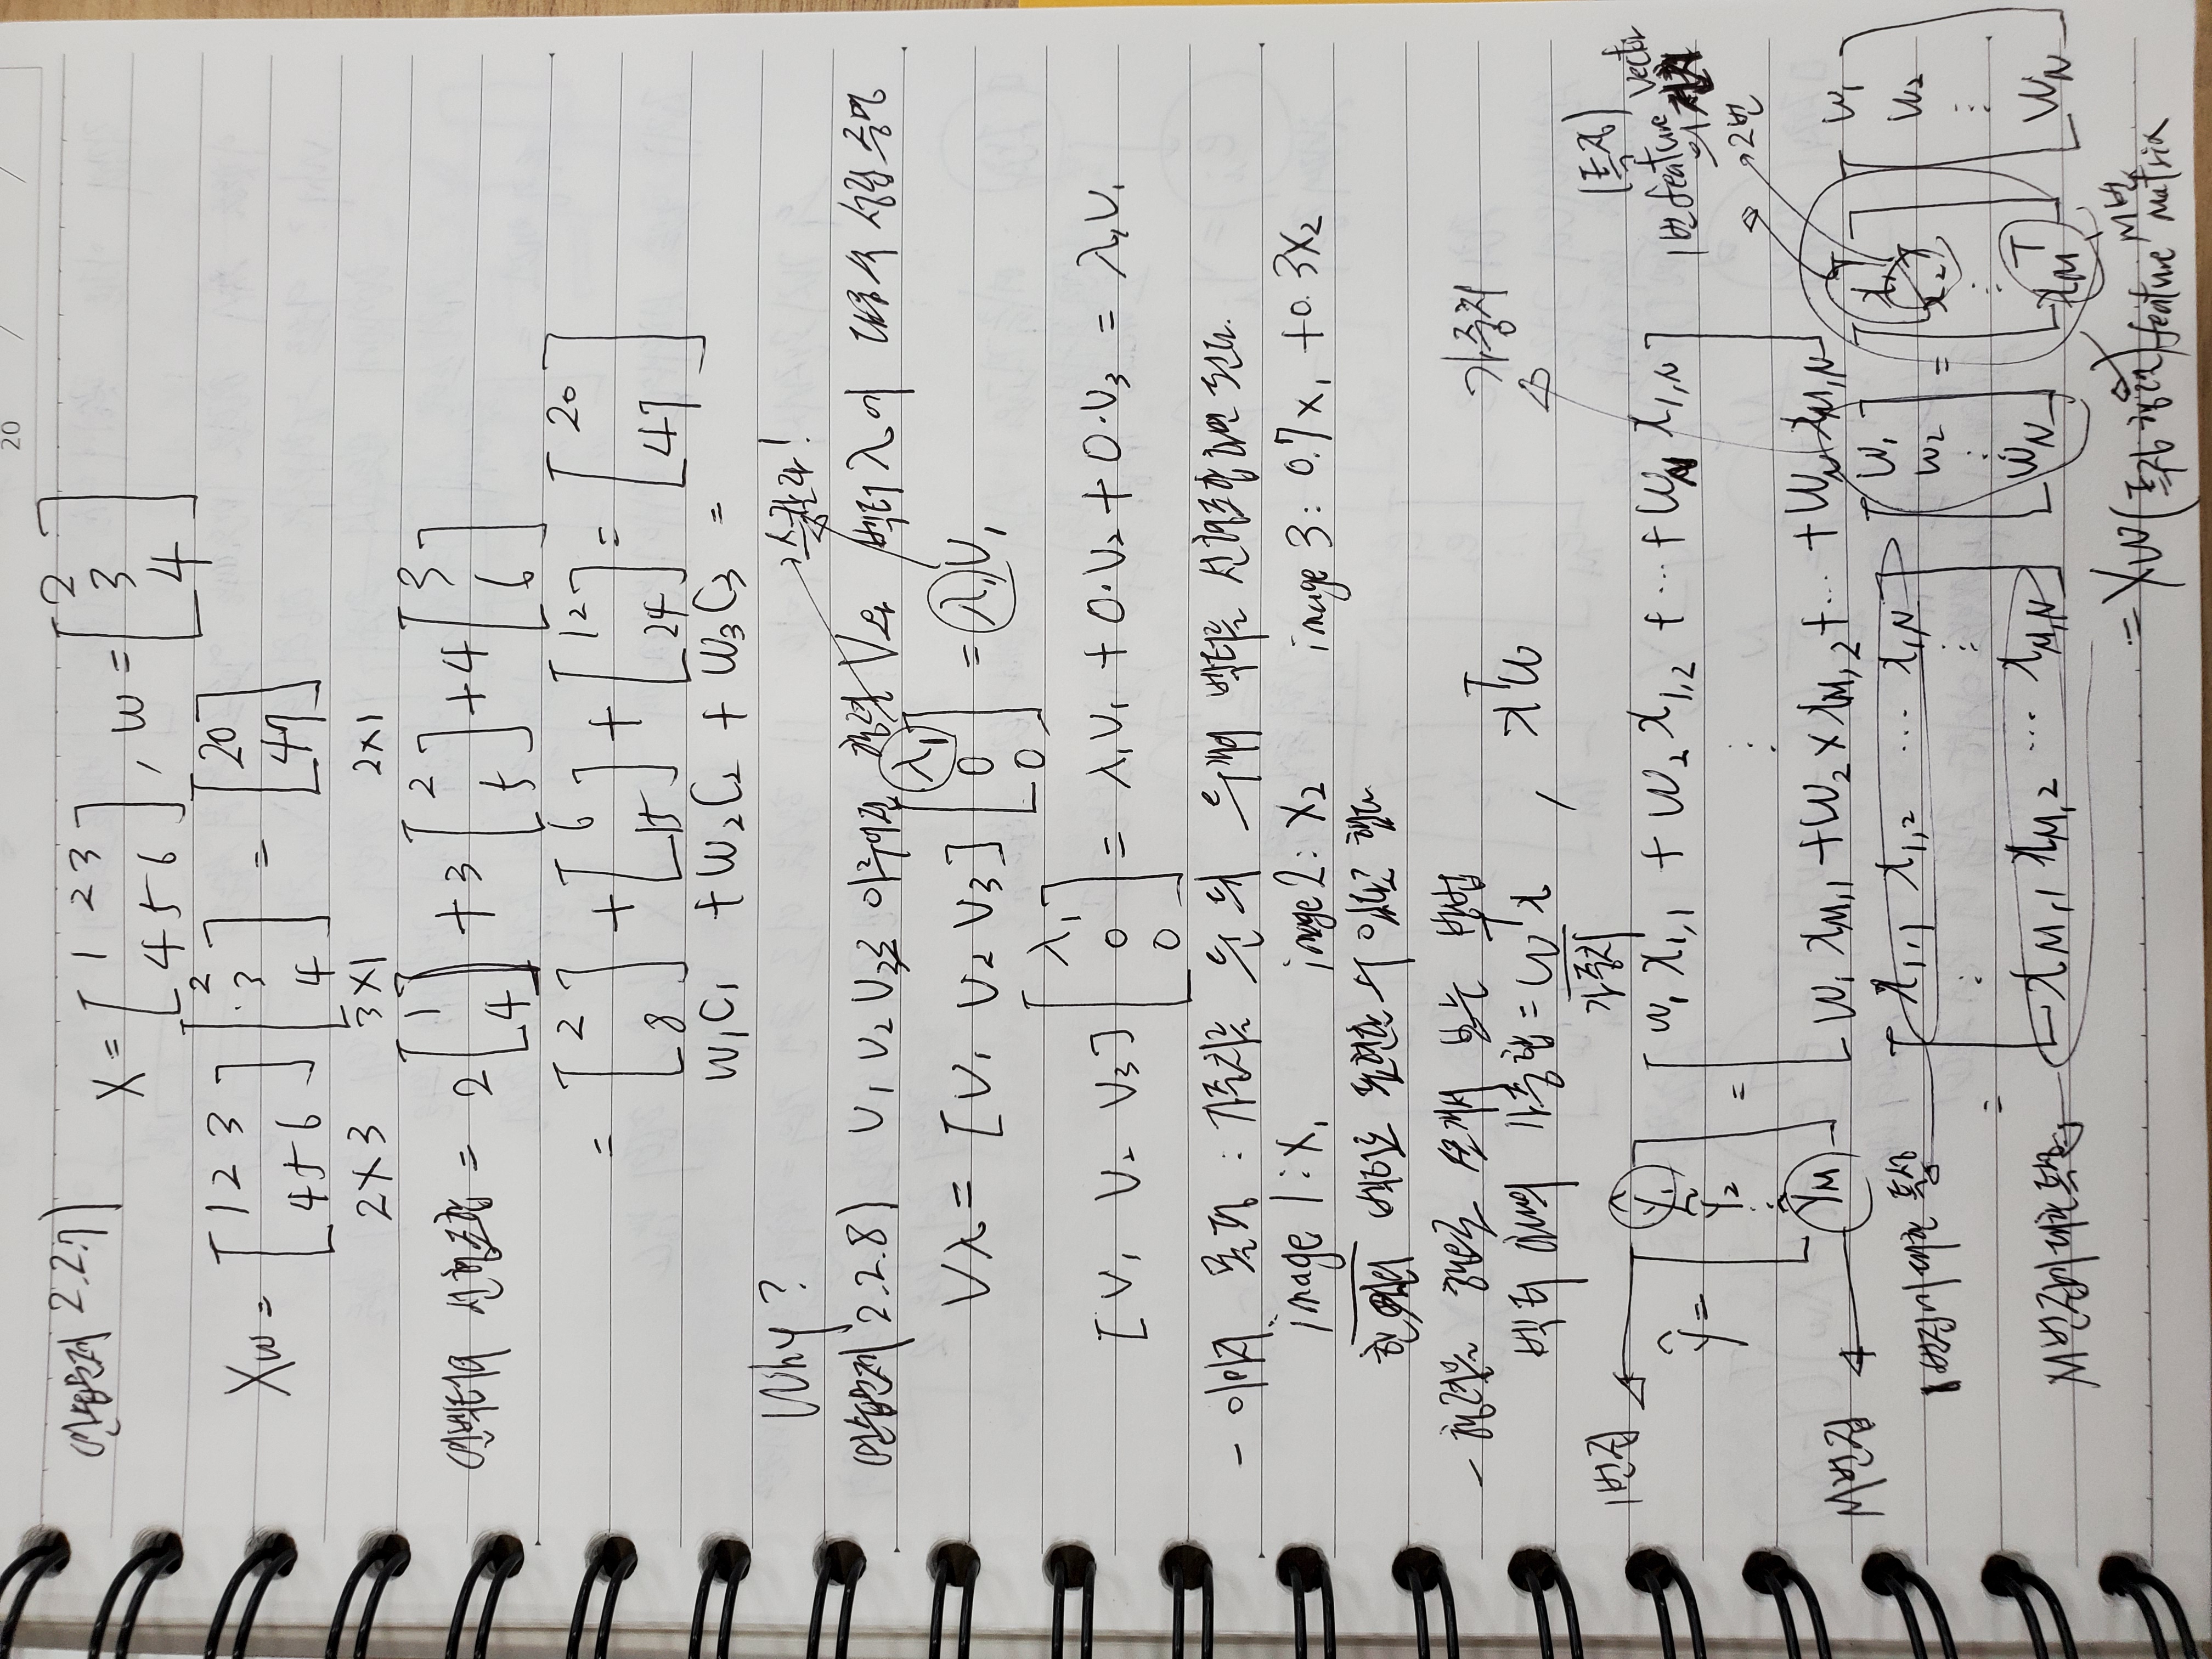 20 / /
연습문제 2.2.7)
X = [1 2 3 / 4 5 6], w = [2 / 3 / 4]
Xw = [1 2 3 / 4 5 6] [2 / 3 / 4] = [20 / 47]
2×3 3×1 2×1
열벡터의 선형조합 = 2[1 / 4] + 3[2 / 5] + 4[3 / 6]
= [2 / 8] + [6 / 15] + [12 / 24] = [20 / 47]
w₁C₁ + w₂C₂ + w₃C₃ =
Why?
스칼라!
연습문제 2.2.8) V₁ V₂ V₃로 이루어진 행렬 V와 벡터 λ에 다음 식 성립 증명
Vλ = [V₁ V₂ V₃] [λ₁ / 0 / 0] = λ₁V₁
[V₁ V₂ V₃] [λ₁ / 0 / 0] = λ₁V₁ + 0·V₂ + 0·V₃ = λ₁V₁
- 이미지 몰핑 : 가중치를 둔 뒤 두개의 벡터를 선형조합하면 된다.
image 1 : x₁ image 2 : x₂ image 3 : 0.7x₁ + 0.3x₂
벡터로 표현할 수 있다고 했다.
- 행렬을 행으로 쪼개서 보는 방법
벡터 하나의 가중합 = wᵀx , xᵀw
가중치
가중치
1번집
(특징)
1번 feature vector
의 전치
2번
ŷ = [ŷ₁ / y₂ / ⋮ / y_M] = [w₁x₁,₁ + w₂x₁,₂ + ⋯ + w_N x₁,N / ⋮ / w₁x_M,₁ + w₂×x_M,₂ + ⋯ + w_N x_M,N]
M번집
1번집에 대한 특성
= [x₁,₁ x₁,₂ ⋯ x₁,N / ⋮ ⋮ / x_M,₁ x_M,₂ ⋯ x_M,N] [w₁ / w₂ / ⋮ / w_N] = [x₁ᵀ / x₂ᵀ / ⋮ / x_Mᵀ] [w₁ / w₂ / ⋮ / w_N]
M번집에 대한 특성
M번
= Xw (특징 행렬) feature matrix